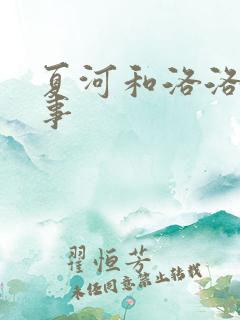 夏河和洛洛
事
翟恒芳
未经同意禁止转载